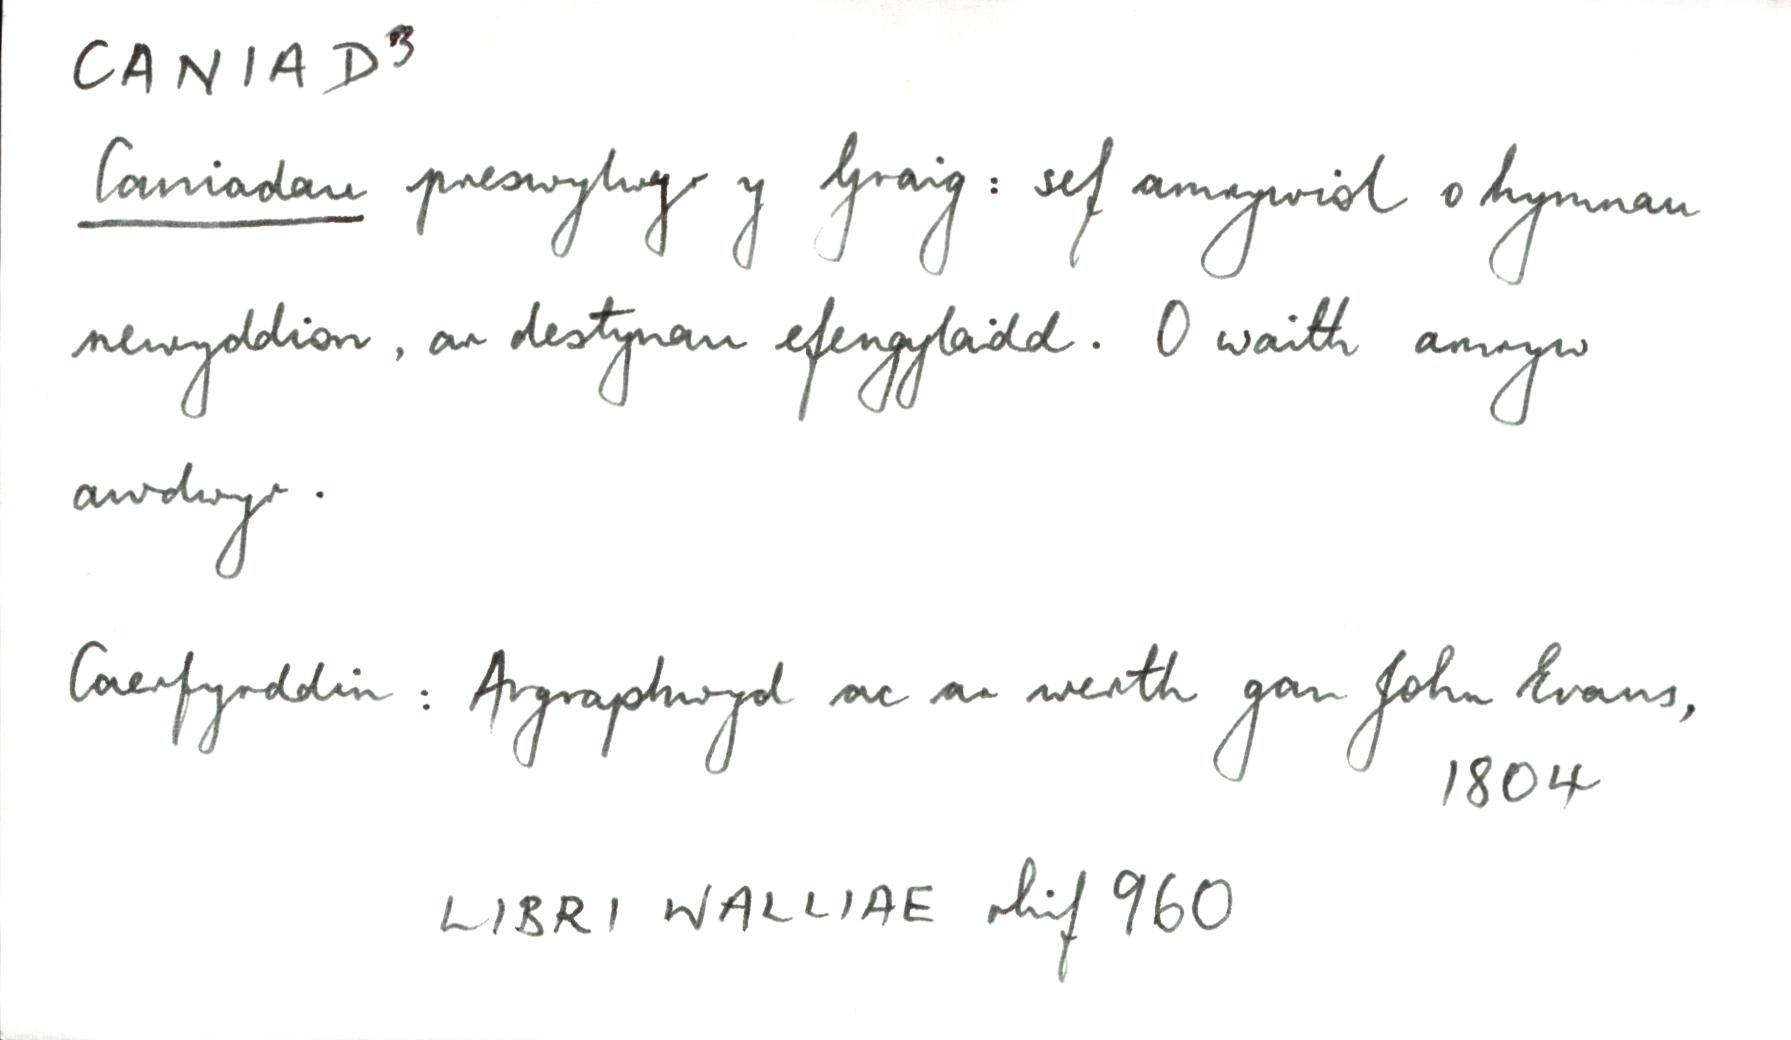 CANIAD³
Caniadau preswylwyr y Graig: sef amrywiol o hymnau
newyddion, ar destynau efengylaidd. O waith amryw
awdwyr.
Caerfyrddin: Argraphwyd ac ar werth gan John Evans,
1804
LIBRI WALLIAE rhif 960